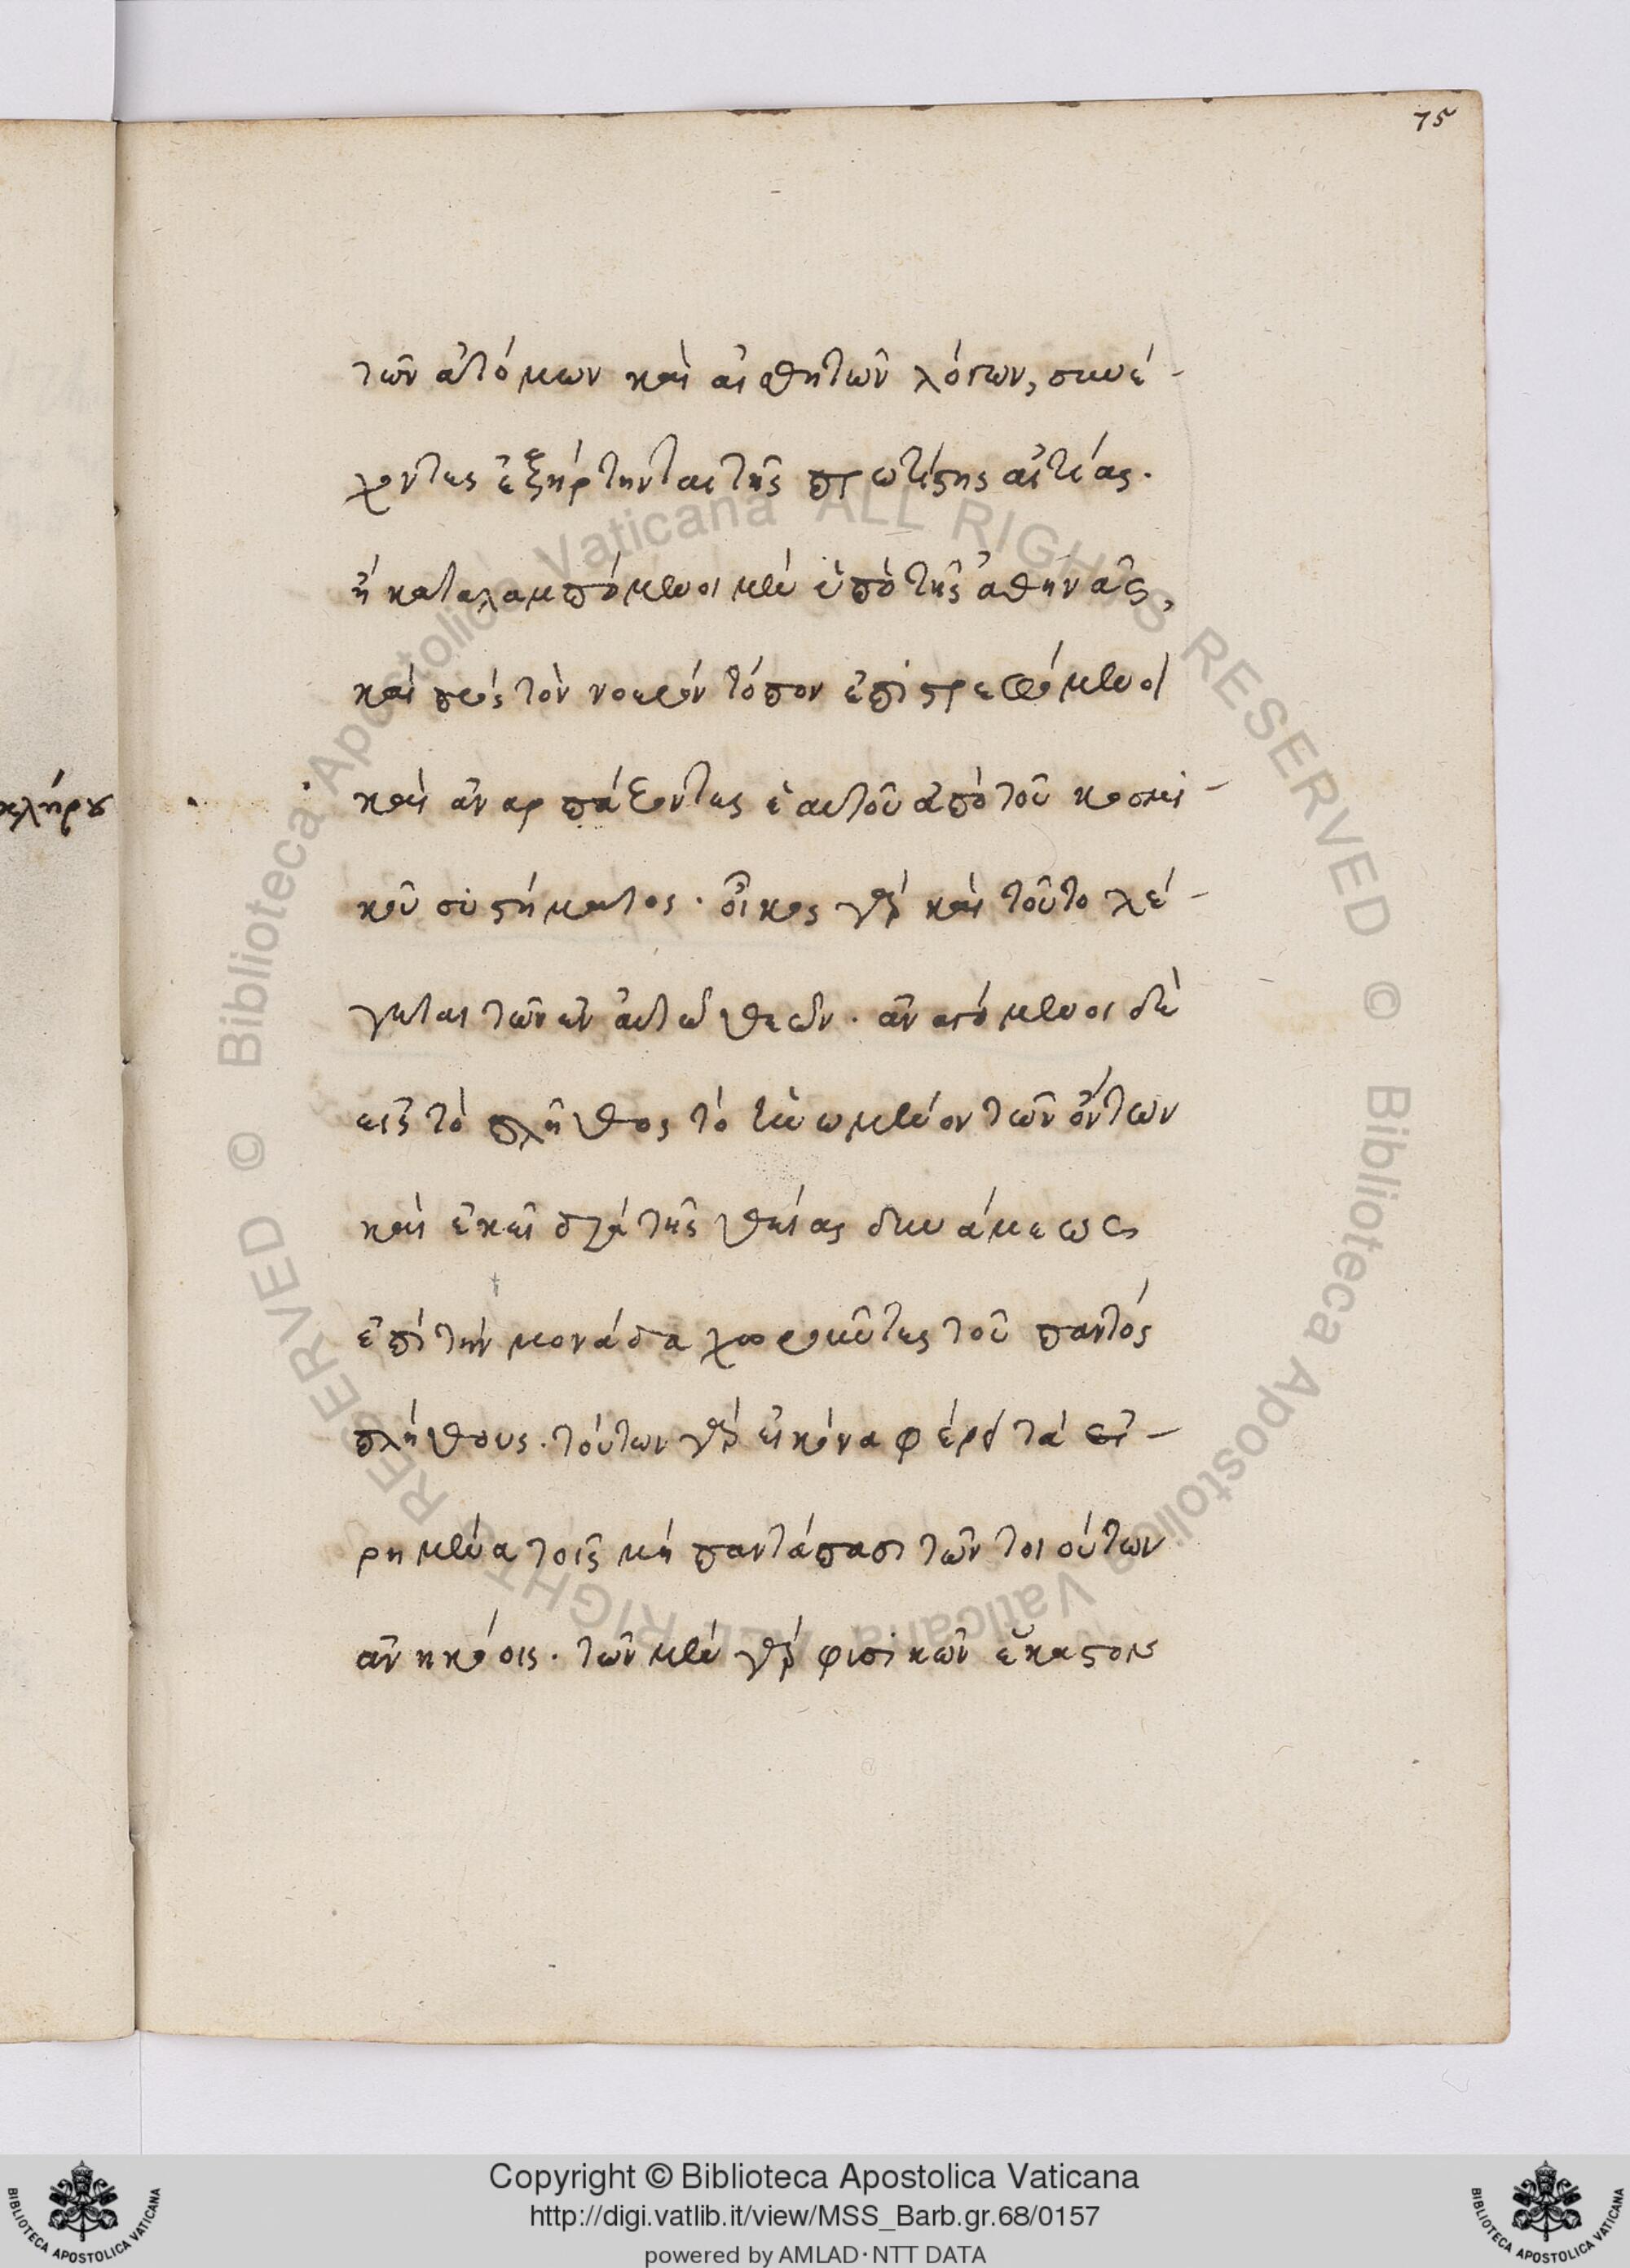 75
τῶν ἀτόμων καὶ αἰσθητῶν λόγων, συνέ-
χοντες ἐξήρτηνται τῆς πρωτίστης αἰτίας.
ἢ καταλαμπόμενοι μὲν ὑπὸ τῆς ἀθηνᾶς,
καὶ πρὸς τὸν νοερὸν τόπον ἐπιστρεφόμενοι
καὶ ἀναρπάζοντες ἑαυτοῦ ἀπὸ τοῦ κοσμι-
κοῦ συστήματος. οἶκος γὰρ καὶ τοῦτο λέ-
γεται τῶν ἐν αὐτῷ θεῶν. ἀναγόμενοι δὲ
εἰς τὸ πλῆθος τὸ ἑνωμένον τῶν ὄντων
καὶ ἐκεῖ διὰ τῆς θείας δυνάμεως
ἐπὶ τὴν μονάδα χωροῦντες τοῦ παντὸς
πλήθους. τούτων γὰρ εἰκόνα φέρει τὰ εἰ-
ρημένα τοῖς μὴ παντάπασι τῶν τοιούτων
ἀνηκόοις. τῶν μὲν γὰρ φυσικῶν ἕκαστον
κλήρου
Copyright © Biblioteca Apostolica Vaticana
http://digi.vatlib.it/view/MSS_Barb.gr.68/0157
powered by AMLAD·NTT DATA
BIBLIOTECA APOSTOLICA VATICANA
BIBLIOTECA APOSTOLICA VATICANA
© Biblioteca Apostolica Vaticana ALL RIGHTS RESERVED
© Biblioteca Apostolica Vaticana ALL RIGHTS RESERVED